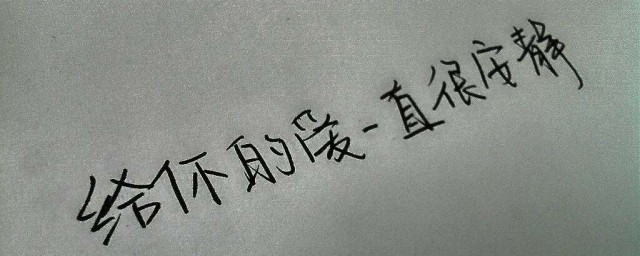 给你的爱一直很安静